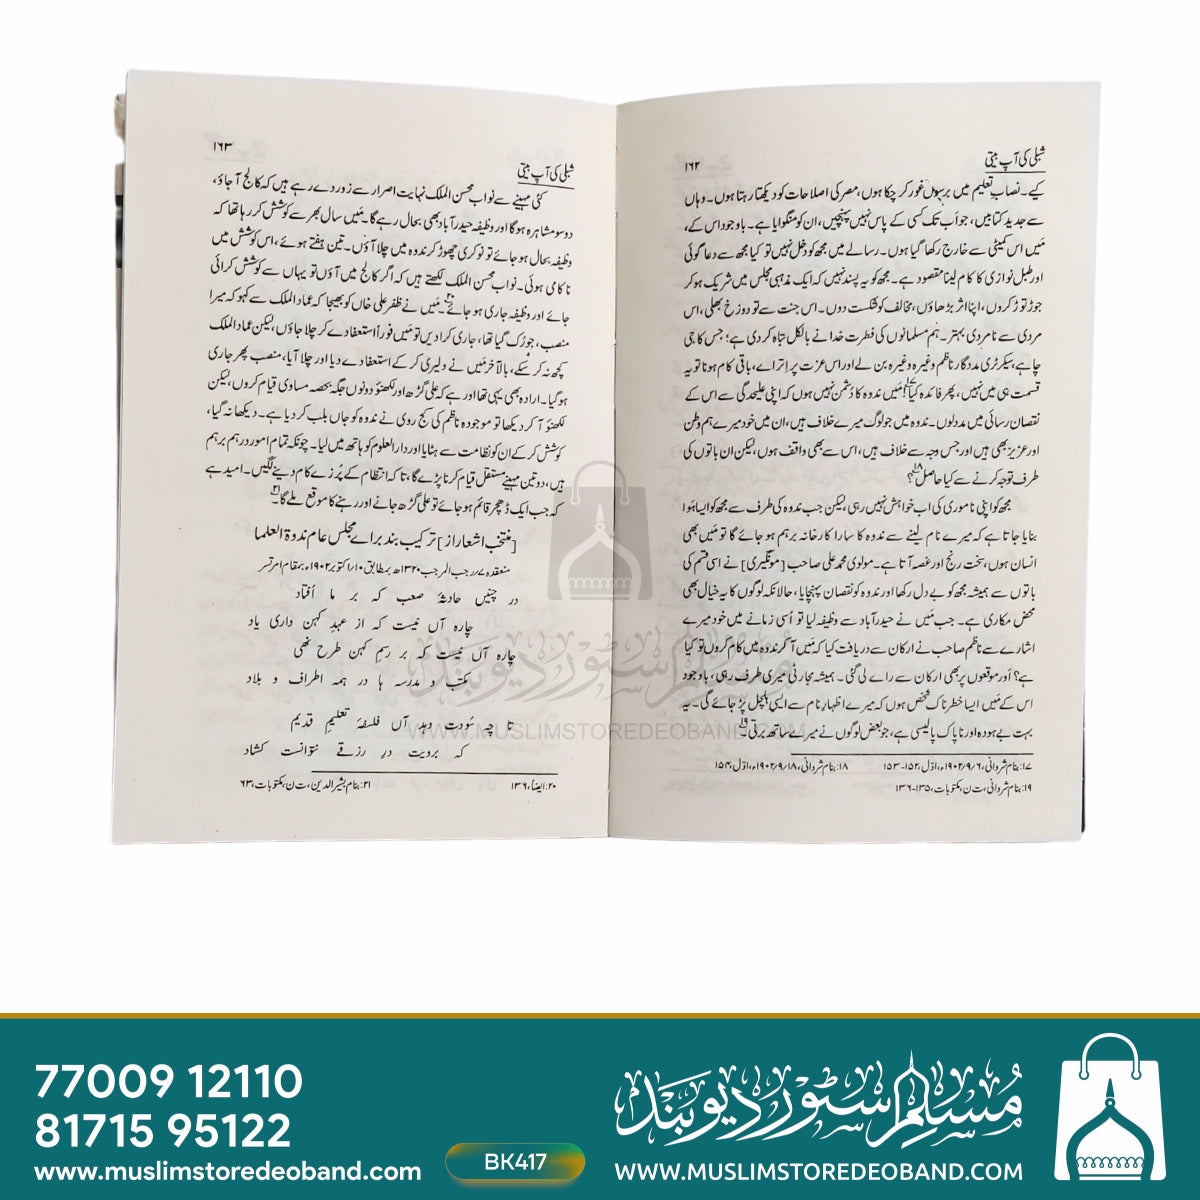 شبلی کی آپ بیتی ۱۶۲
کیے۔ نصابِ تعلیم میں برسوں غور کر چکا ہوں، مصر کی اصلاحات کو دیکھتا رہتا ہوں۔ وہاں
سے جدید کتابیں، جو اَب تک کسی کے پاس نہیں پہنچیں، ان کو منگوایا ہے۔ باوجود اس کے،
مَیں اس کمیٹی سے خارج رکھا گیا ہوں۔ رسالے میں مجھ کو دخل نہیں تو کیا مجھ سے دعا گوئی
اور طبل نوازی کا کام لینا مقصود ہے۔ مجھ کو یہ پسند نہیں کہ ایک مذہبی مجلس میں شریک ہو کر
جوڑ توڑ کروں، اپنا اثر بڑھاؤں، مخالف کو شکست دوں۔ اس جنت سے تو دوزخ بھلی، اس
مردی سے نامردی بہتر۔ ہم مسلمانوں کی فطرت خدا نے بالکل تباہ کر دی ہے؛ جس کا جی
چاہے، سیکرٹری مددگار ناظم وغیرہ وغیرہ بن لے اور اس عزت پر اِترائے، باقی کام ہونا تو یہ
قسمت ہی میں نہیں، پھر فائدہ کیا؟۱۷ مَیں ندوہ کا دُشمن نہیں ہوں کہ اپنی علیحدگی سے اس کے
نقصان رسائی میں مدد لوں۔ ندوہ میں جو لوگ میرے خلاف ہیں، ان میں خود میرے ہم وطن
اور عزیز بھی ہیں اور جس وجہ سے خلاف ہیں، اس سے بھی واقف ہوں، لیکن ان باتوں کی
طرف توجہ کرنے سے کیا حاصل؟۱۸
مجھ کو اپنی ناموری کی اب خواہش نہیں رہی، لیکن جب ندوہ کی طرف سے مجھ کو ایسا ہَوا
بنایا جاتا ہے کہ میرے نام لینے سے ندوہ کا سارا کارخانہ برہم ہو جائے گا تو مَیں بھی
انسان ہوں، سخت رنج اور غصہ آتا ہے۔ مولوی محمد علی صاحب [مونگیری] نے اسی قسم کی
باتوں سے ہمیشہ مجھ کو بے دل رکھا اور ندوہ کو نقصان پہنچایا، حالانکہ لوگوں کا یہ خیال بھی
محض مکاری ہے۔ جب مَیں نے حیدرآباد سے وظیفہ لیا تو اُسی زمانے میں خود میرے
اشارے سے ناظم صاحب نے ارکان سے دریافت کیا کہ مَیں آ کر ندوہ میں کام کروں تو کیا
ہے؟ اَور موقعوں پر بھی ارکان سے رائے لی گئی۔ ہمیشہ مجارٹی میری طرف رہی، باوجود
اس کے مَیں ایسا خطرناک شخص ہوں کہ میرے اظہارِ نام سے ایسی ہلچل پڑ جائے گی۔ یہ
بہت بے ہودہ اور ناپاک پالیسی ہے، جو بعض لوگوں نے میرے ساتھ برتی۔۱۹
۱۷: بنام شروانی، ۱۹۰۲/۹/۶ء، اوّل، ۱۵۲-۱۵۳ ۱۸: بنام شروانی، ۱۹۰۲/۹/۱۸ء، اوّل، ۱۵۴
۱۹: بنام شروانی، ت ن، مکتوبات، ۱۳۵-۱۳۶
شبلی کی آپ بیتی ۱۶۳
کئی مہینے سے نواب محسن الملک نہایت اصرار سے زور دے رہے ہیں کہ کالج آ جاؤ،
دو سو مشاہرہ ہو گا اور وظیفہ حیدرآباد بھی بحال رہے گا۔ مَیں سال بھر سے کوشش کر رہا تھا کہ
وظیفہ بحال ہو جائے تو نوکری چھوڑ کر ندوہ میں چلا آؤں۔ تین ہفتے ہوئے، اس کوشش میں
ناکامی ہوئی۔ نواب محسن الملک لکھتے ہیں کہ اگر کالج میں آؤں تو یہاں سے کوشش کرائی
جائے اور وظیفہ جاری ہو جائے۔۲۰ مَیں نے ظفر علی خاں کو بھیجا کہ عماد الملک سے کہو کہ میرا
منصب، جو رُک گیا تھا، جاری کرا دیں تو مَیں فوراً استعفا دے کر چلا جاؤں، لیکن عماد الملک
کچھ نہ کر سکے، بالآخر مَیں نے دلیری کر کے استعفا دے دیا اور چلا آیا، منصب پھر جاری
ہو گیا۔ ارادہ بھی یہی تھا اور ہے کہ علی گڑھ اور لکھنؤ دونوں جگہ بحصہ مساوی قیام کروں، لیکن
لکھنؤ آ کر دیکھا تو موجودہ ناظم کی کج روی نے ندوہ کو جاں بلب کر دیا ہے۔ دیکھا نہ گیا،
کوشش کر کے ان کو نظامت سے ہٹایا اور دار العلوم کو ہاتھ میں لیا۔ چونکہ تمام امور درہم برہم
ہیں، دو تین مہینے مستقل قیام کرنا پڑے گا، تا کہ انتظام کے پُرزے کام دینے لگیں۔ امید ہے
کہ جب ایک ڈھچر قائم ہو جائے تو علی گڑھ جانے اور رہنے کا موقع ملے گا۔۲۱
[منتخب اشعار از] ترکیب بند برائے مجلس عام ندوۃ العلما
منعقدہ ۷/رجب المرجب ۱۳۲۰ھ بمطابق ۱۰/اکتوبر ۱۹۰۲ء بمقام امرتسر
در چنیں حادثۂ صعب کہ بر ما اُفتاد
چارہ آں نیست کہ از عہدِ کہن داری یاد
چارہ آں نیست کہ بر رسمِ کہن طرح نہی
مکتب و مدرسہ ہا در ہمہ اطراف و بلاد
تا چہ سُودت دہد آں فلسفۂ تعلیمِ قدیم
کہ برویت درِ رزقے نتوانست کشاد
۲۰: ایضاً، ۱۳۶ ۲۱: بنام بشیر الدین، ت ن، مکتوبات، ۶۳
مسلم سٹور دیوبند
WWW.MUSLIMSTOREDEOBAND.COM
77009 12110
81715 95122
www.muslimstoredeoband.com
BK417
مسلم سٹور دیوبند
WWW.MUSLIMSTOREDEOBAND.COM